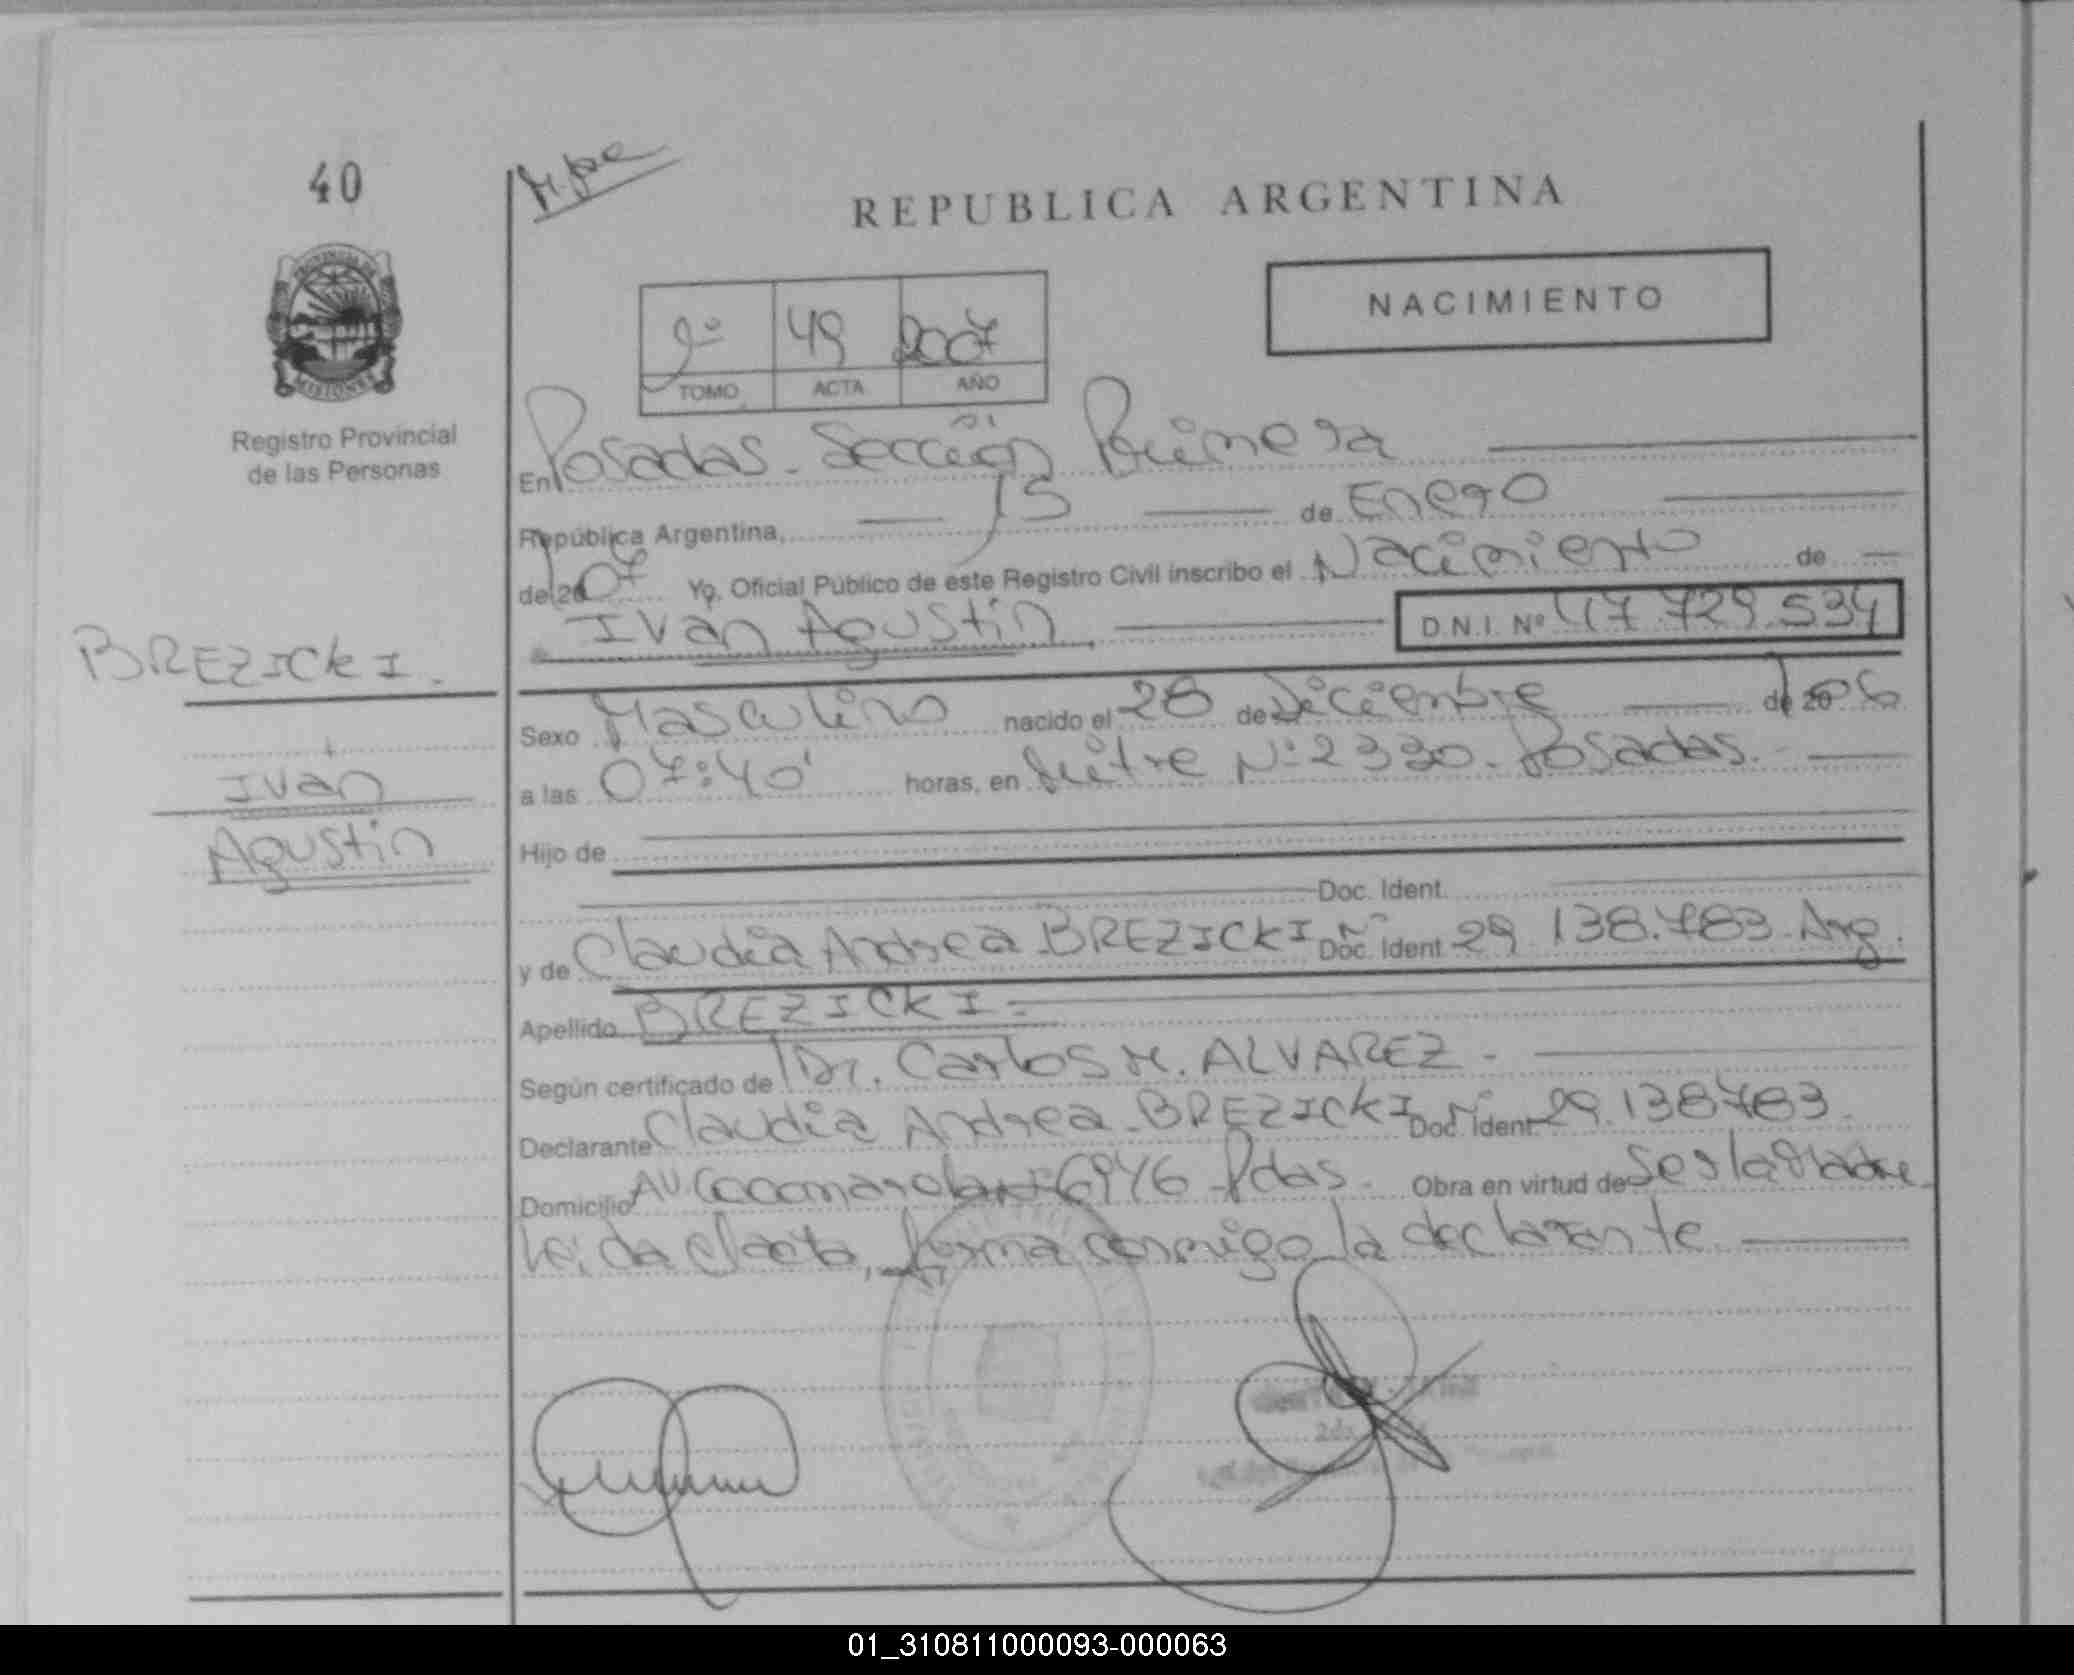 40
REPUBLICA ARGENTINA
PROVINCIA DE
MISIONES
NACIMIENTO
2º 49 2007
TOMO ACTA AÑO
Registro Provincial
de las Personas
En Posadas - Sección Primera
República Argentina, 15 de Enero
de 2007 Yo, Oficial Público de este Registro Civil inscribo el Nacimiento de
Ivan Agustin D.N.I. Nº 47.729.534
BREZICKI.
Sexo Masculino nacido el 28 de Diciembre de 2006
Ivan
a las 07:40' horas, en Mitre Nº 2330 - Posadas.
Agustin
Hijo de
Doc. Ident.
y de Claudia Andrea BREZICKI Doc. Ident. Nº 29.138.783 Arg.
Apellido BREZICKI.
Según certificado de Dr. Carlos M. ALVAREZ -
Declarante Claudia Andrea BREZICKI Doc. Ident. Nº 29.138783.
Domicilio AV. Cocomarola Nº 6946 Pdas. Obra en virtud de Ser la Madre
Leida el acta, firma conmigo la declarante
2da
01_310811000093-000063